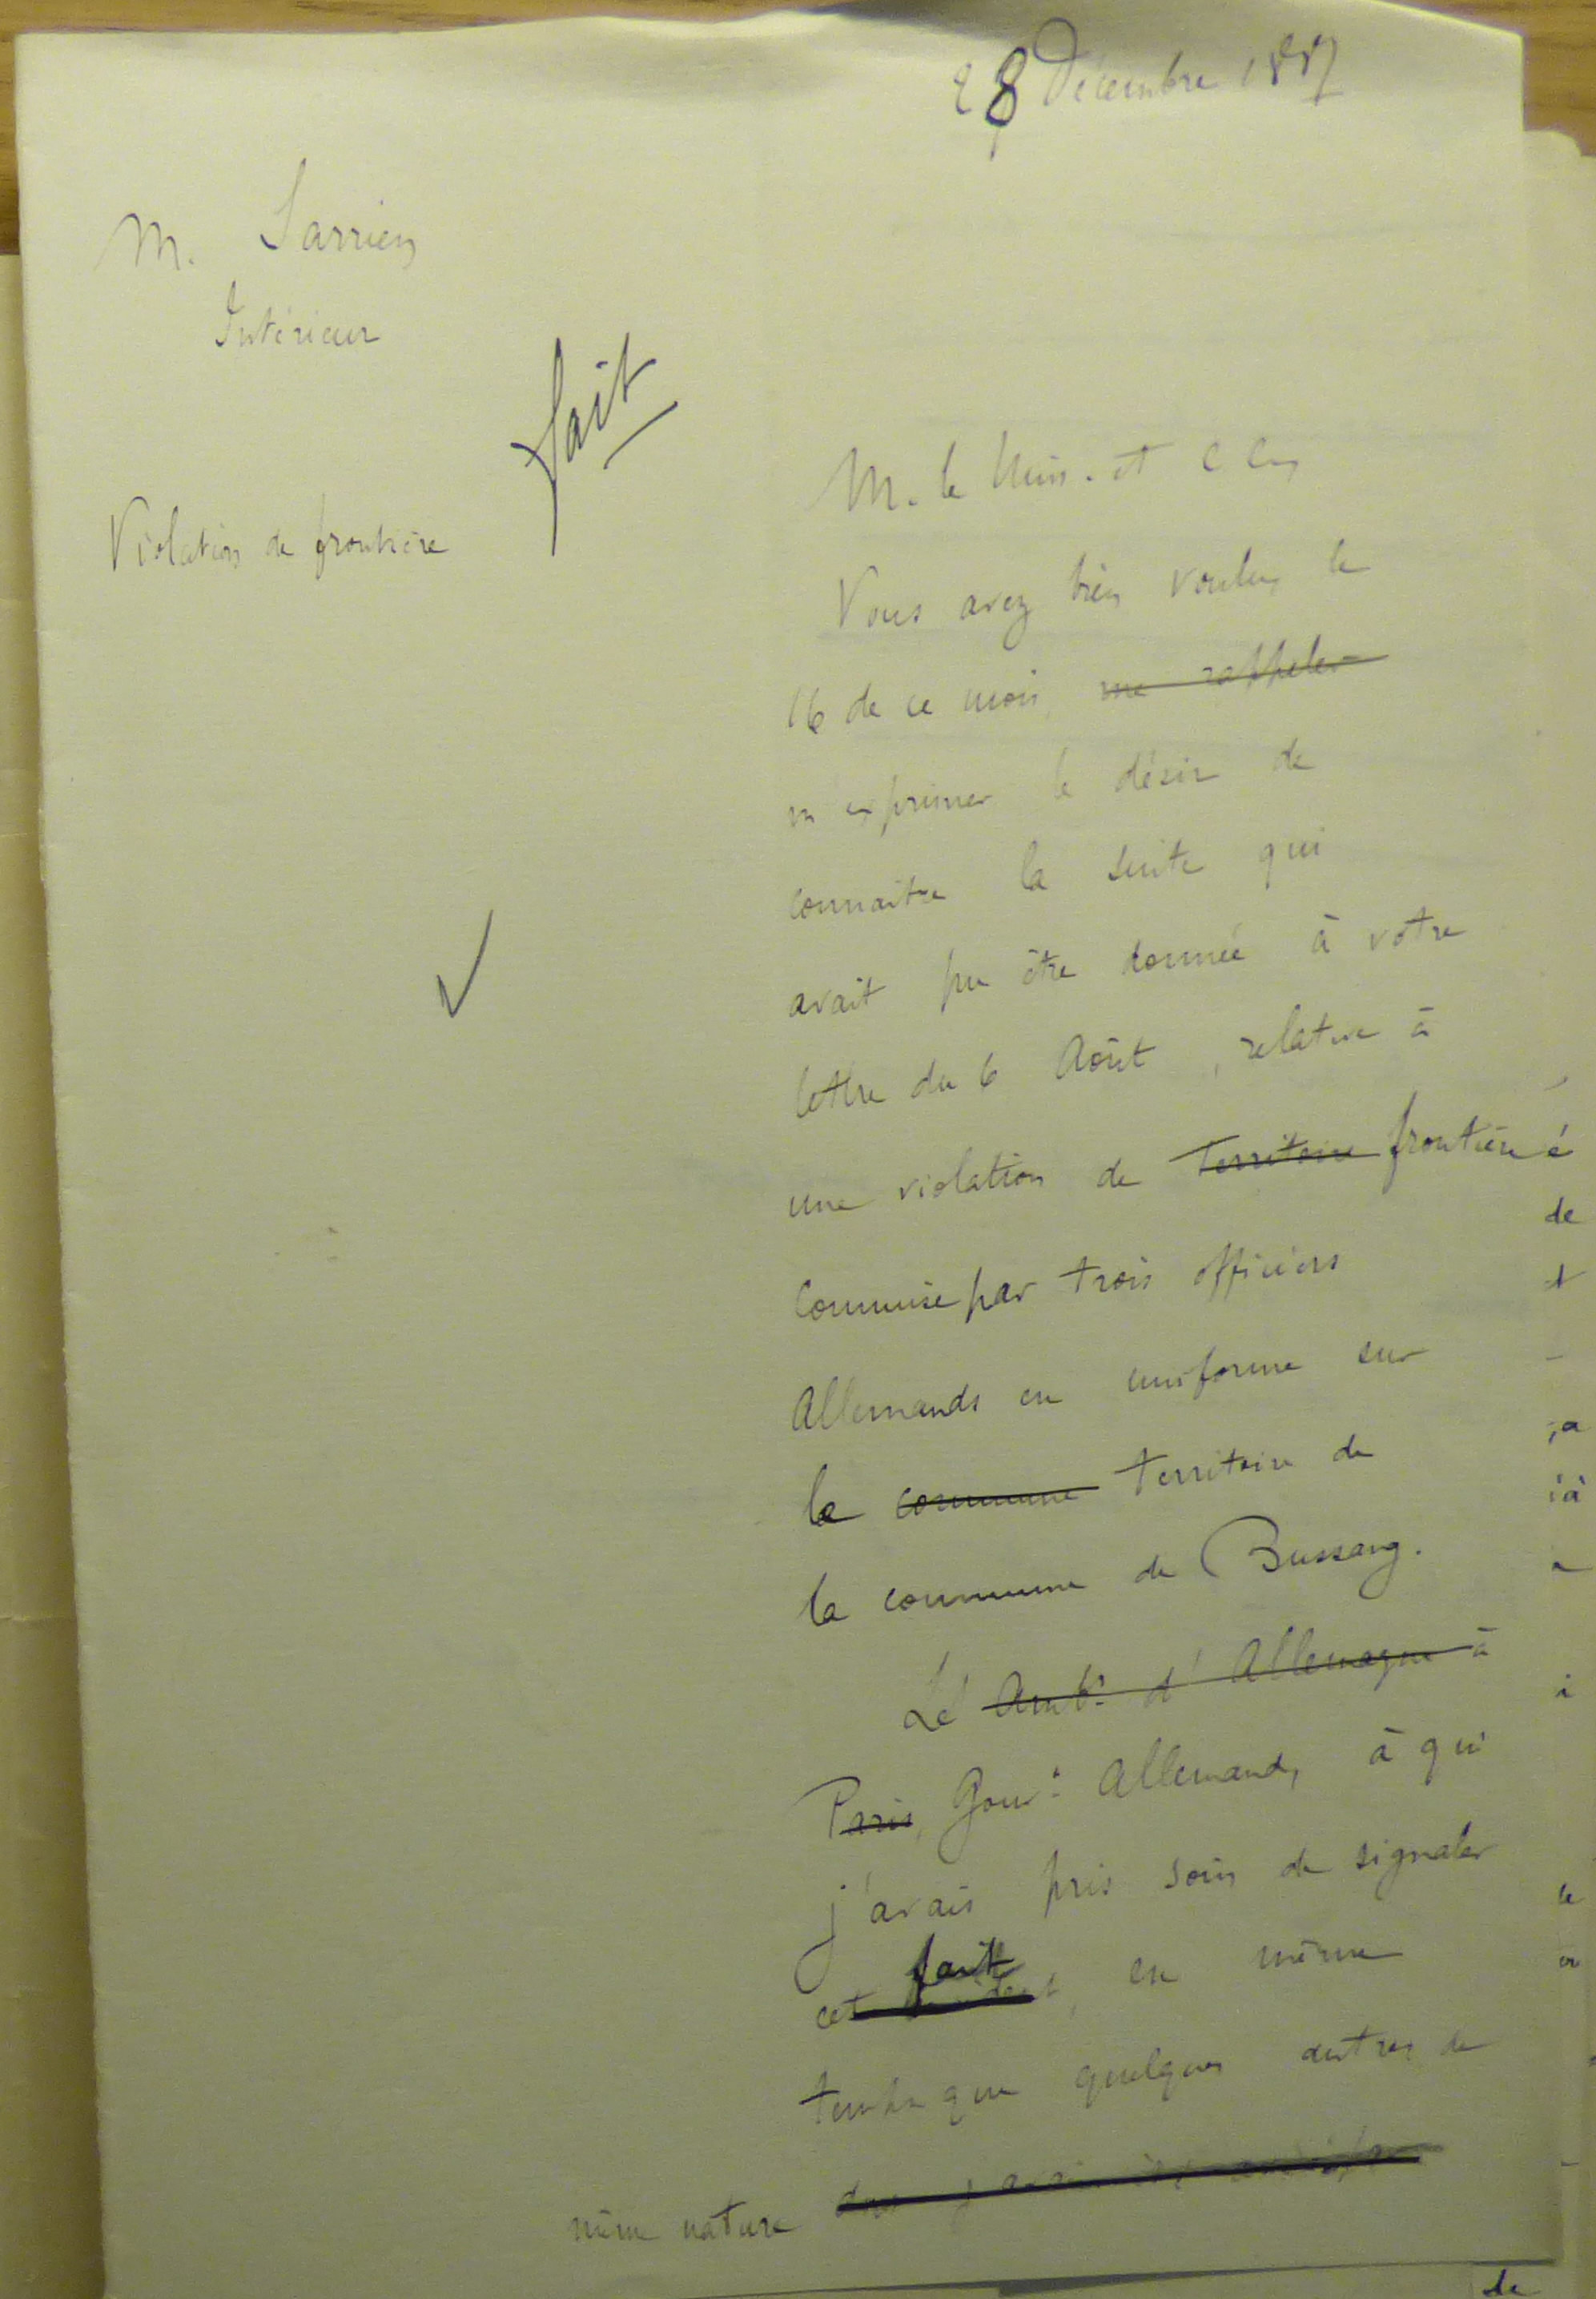 28 Décembre 1887
M. Sarrien
Intérieur
fait
Violation de frontière
M. le Min. et c
Vous avez bien voulu le
16 de ce mois, me rappeler
m'exprimer le désir de
connaitre la suite qui
avait pu être donnée à votre
lettre du 6 Août, relative à
une violation de Territoire frontière
commise par trois officiers
Allemands en uniforme sur
le commune territoire de
la commune de Bussang.
Le Amb.r d'Allemagne à
Paris, Gouv.t Allemand, à qui
j'avais pris soin de signaler
fait
cet incident, en même
temps que quelques autres de
même nature
de